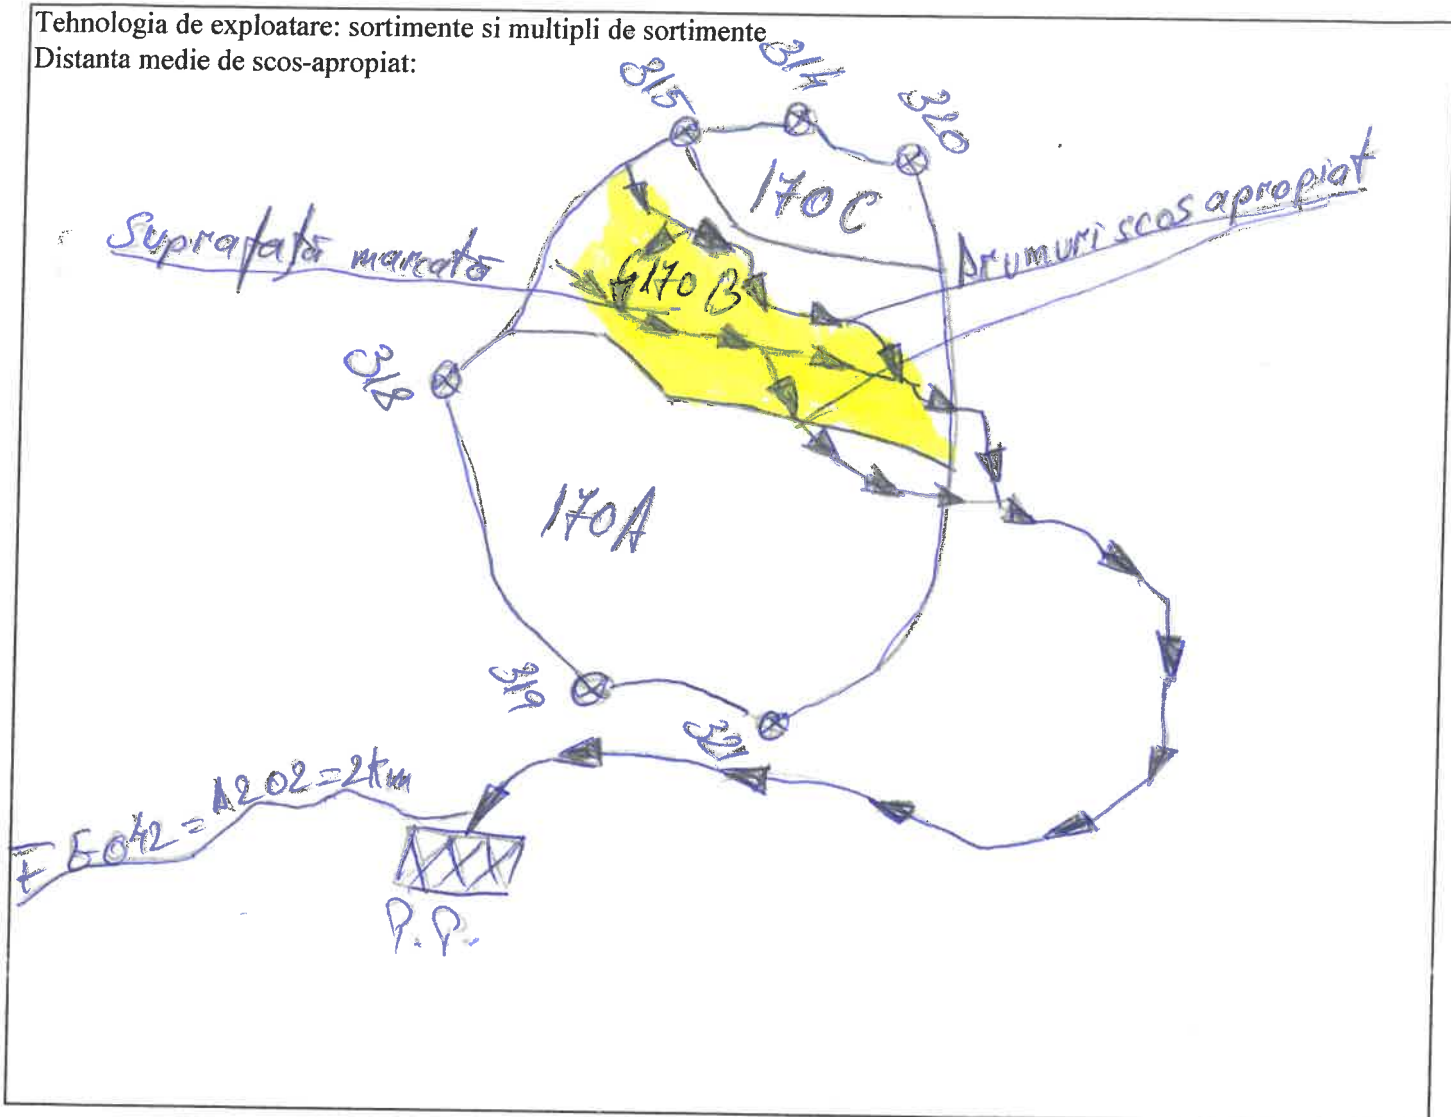 Tehnologia de exploatare: sortimente si multipli de sortimente
Distanta medie de scos-apropiat:
315
314
320
170C
Suprafață marcată
Drumuri scos apropiat
170 B
318
170A
319
321
= 2km
P.P.